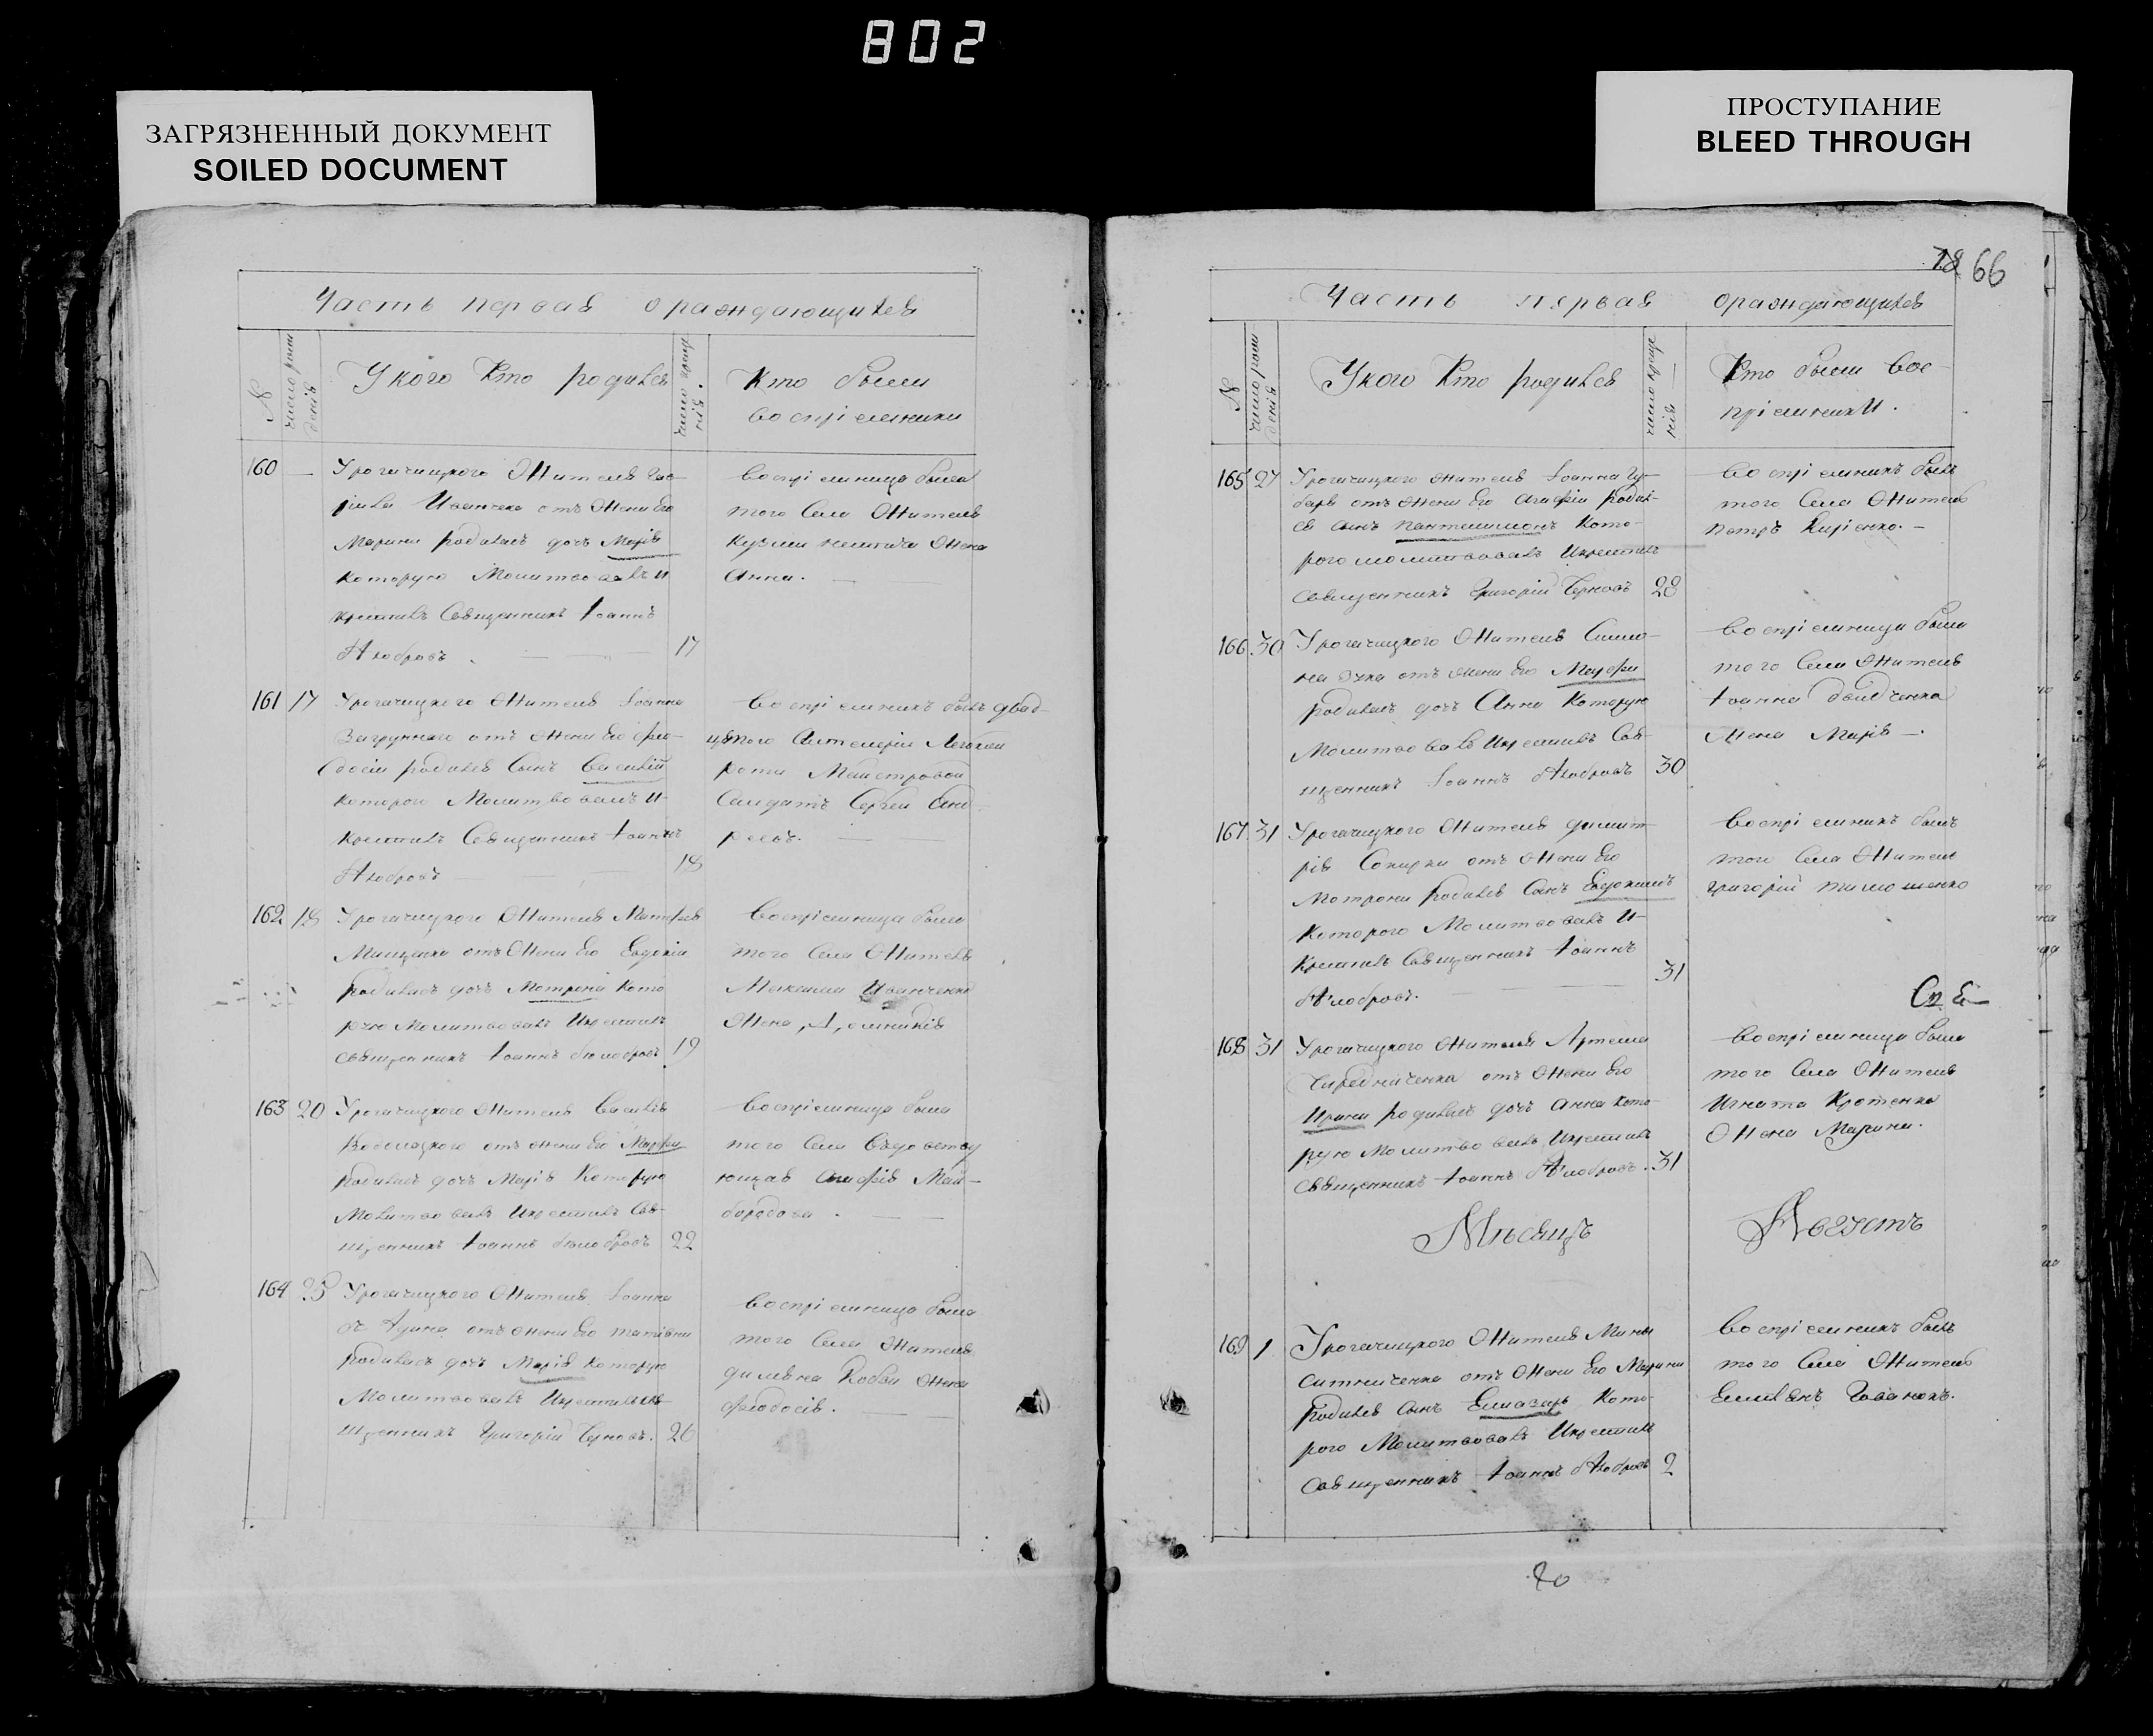 802
ЗАГРЯЗНЕННЫЙ ДОКУМЕНТ
SOILED DOCUMENT
ПРОСТУПАНИЕ
BLEED THROUGH
Часть первая о раждающихся
№
число рож
денія
У кого Кто родился
число креще
нія.
Кто были
воспріемники
160 — Урогачицкого Жителя
Иванченка отъ Жены Его
Марины родилась дочь Марія
которую Молитвовалъ и
крестилъ Священникъ Іоаннъ
17
воспріемница была
того Села Жителя
Жена
Анна.
161 17 Урогачицкого Жителя Іоанна
отъ Жены Его Фео-
досіи родился Сынъ Василій
которого Молитвовалъ и
крестилъ Священникъ Іоаннъ
18
воспріемникъ былъ двад-
цатого
роты
Салдатъ Сергей Анд
реевъ.
162 18 Урогачицкого Жителя Матфея
Мищенка отъ Жены Его Евдокіи
родилась дочь Матрона кото
рую Молитвовалъ Икрестилъ
священникъ Іоаннъ 19
воспріемница была
того Села Жителя
Максима Иванченка
Жена
163 20 Урогачицкого Жителя Василія
отъ жены Его Марфы
родилась дочь Марія Которую
Молитвовалъ Икрестилъ Свя-
щенникъ Іоаннъ 22
воспріемница была
того Села
ющая Агафія Май-
бородова.
164 25 Урогачицкого Жителя Іоанна
отъ жены Его Татіяны
родилась дочь Марія которую
Молитвовалъ Икрестилъ свя
щенникъ Григорій Черновъ. 26
воспріемница была
того Села Жителя
Жена
Феодосія.
78 66
Часть первая о раждающихся
№
число рож
денія
Укого Кто родился
число креще
нія
Кто были вос
пріемники.
165 27 Урогачицкого жителя Іоанна Гу-
баря отъ жены Его Агафіи родил-
ся сынъ Пантелимонъ Кото-
рого молитвовалъ Икрестилъ
священникъ Григорій Черновъ 28
воспріемникъ былъ
того Села Житель
Петръ Киріенко. —
166 30 Урогачицкого Жителя Симо-
на отъ жены Его Марфы
родилась дочь Анна Которую
Молитвовалъ Икрестилъ Свя-
щенникъ Іоаннъ 30
воспріемница была
того Села Жителя
Іоанна
Жена Марія —.
167 31 Урогачицкого Жителя Димит
рія Сокирки отъ Жены Его
Мотроны родился Сынъ Евдокимъ
Которого Молитвовалъ И-
Крестилъ Священникъ Іоаннъ
31
воспріемникъ былъ
того Села Житель
Григорій Тимошенко
168 31 Урогачицкого Жителя Артема
Чередниченка отъ Жены Его
Ирины родилась дочь Анна кото-
рую Молитвовалъ Икрестилъ
Священникъ Іоаннъ 31
воспріемница была
того Села Жителя
Игната Кротенка
Жена Марина.
Мѣсяцъ Августъ
169 1 Урогачицкого Жителя Мины
Ситниченка отъ Жены Его Марины
родился сынъ Елиазаръ Кото-
рого Молитвовалъ Икрестилъ
Священникъ Іоаннъ 2
воспріемникъ былъ
того Села Житель
Емиліянъ